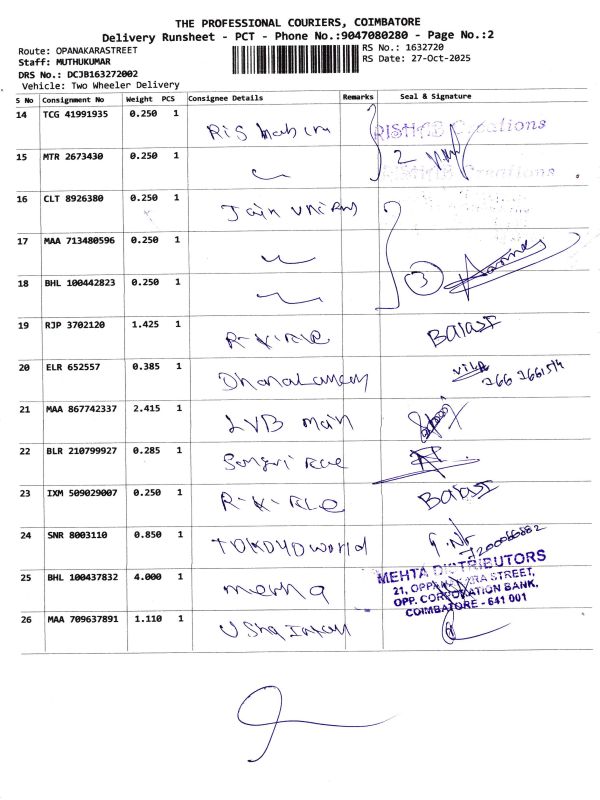 THE PROFESSIONAL COURIERS, COIMBATORE
Delivery Runsheet - PCT - Phone No.:9047080280 - Page No.:2
Route: OPANAKARASTREET
RS No.: 1632720
Staff: MUTHUKUMAR
RS Date: 27-Oct-2025
DRS No.: DCJB163272002
Vehicle: Two Wheeler Delivery
S No Consignment No Weight PCS Consignee Details Remarks Seal & Signature
14 TCG 41991935 0.250 1 RISHAB Creations
15 MTR 2673430 0.250 1 2
RISHAB Creations
16 CLT 8926380 0.250 1 Jain
17 MAA 713480596 0.250 1
18 BHL 100442823 0.250 1 3
19 RJP 3702120 1.425 1 Balaji
20 ELR 652557 0.385 1
21 MAA 867742337 2.415 1 LVB main
22 BLR 210799927 0.285 1
23 IXM 509029007 0.250 1 Balaji
24 SNR 8003110 0.850 1 TOKOYO world
25 BHL 100437832 4.000 1 mehta
MEHTA DISTRIBUTORS
21, OPPANAKARA STREET,
OPP. CORPORATION BANK,
COIMBATORE - 641 001
26 MAA 709637891 1.110 1 Usha